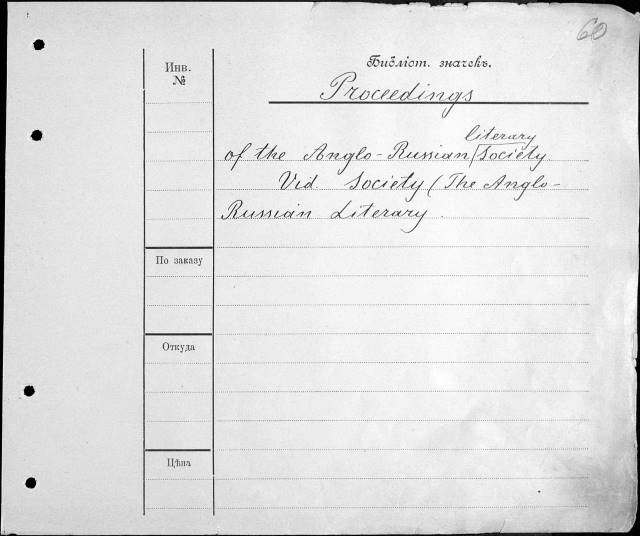 60
Инв.
№
Библіот. значекъ.
Proceedings
literary
of the Anglo-Russian / Society.
Vid. Society (The Anglo-
Russian Literary.
По заказу
Откуда
Цѣна